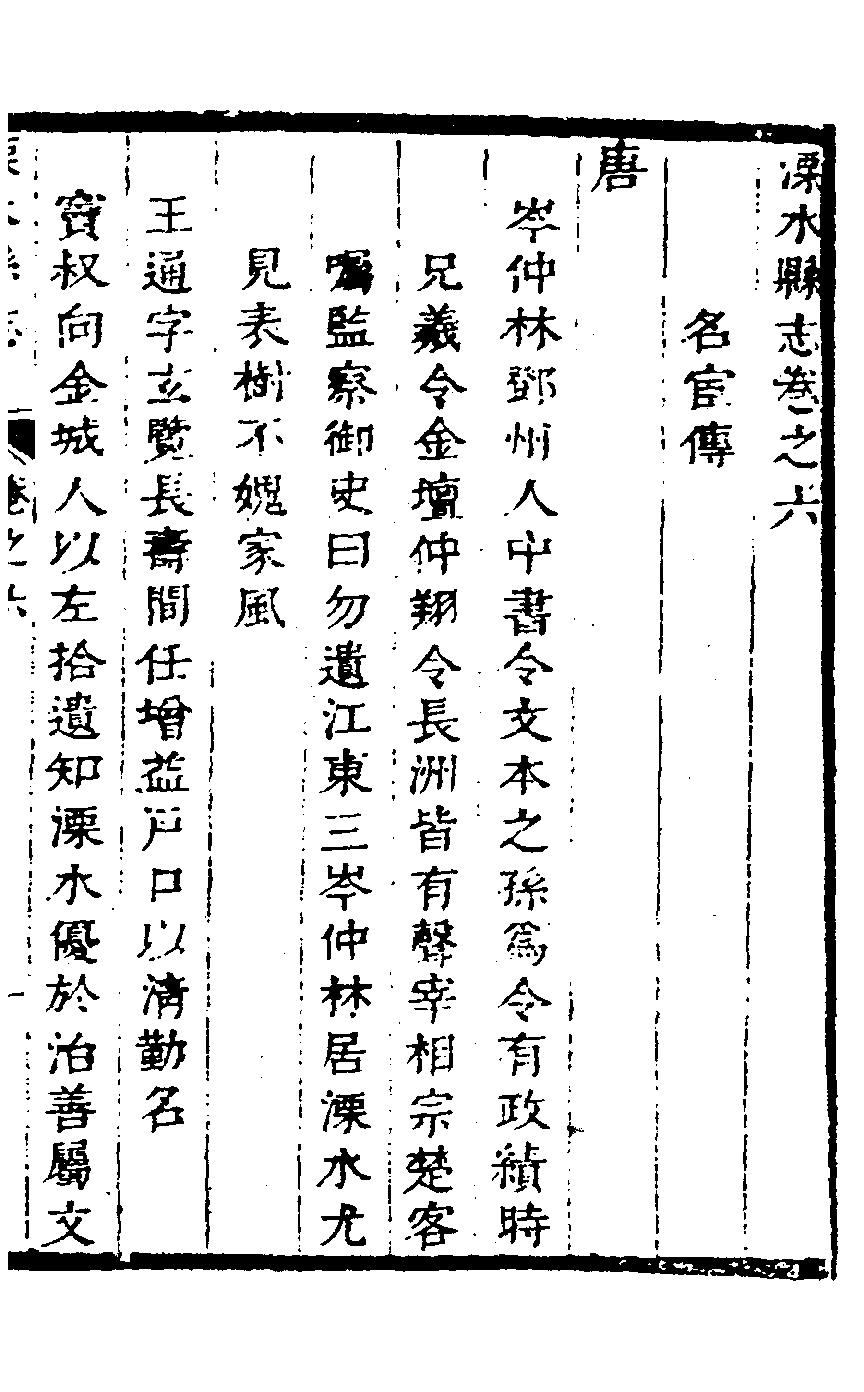 溧水縣志卷之六
名宦傳
唐
岑仲林鄧州人中書令文本之孫爲令有政績時
兄羲令金壇仲翔令長洲皆有聲宰相宗楚客
囑監察御史曰勿遺江東三岑仲林居溧水尤
見表樹不媿家風
王通字玄覽長壽間任增益戸口以清勤名
竇叔向金城人以左拾遺知溧水優於治善屬文
溧水縣志 卷之六 一